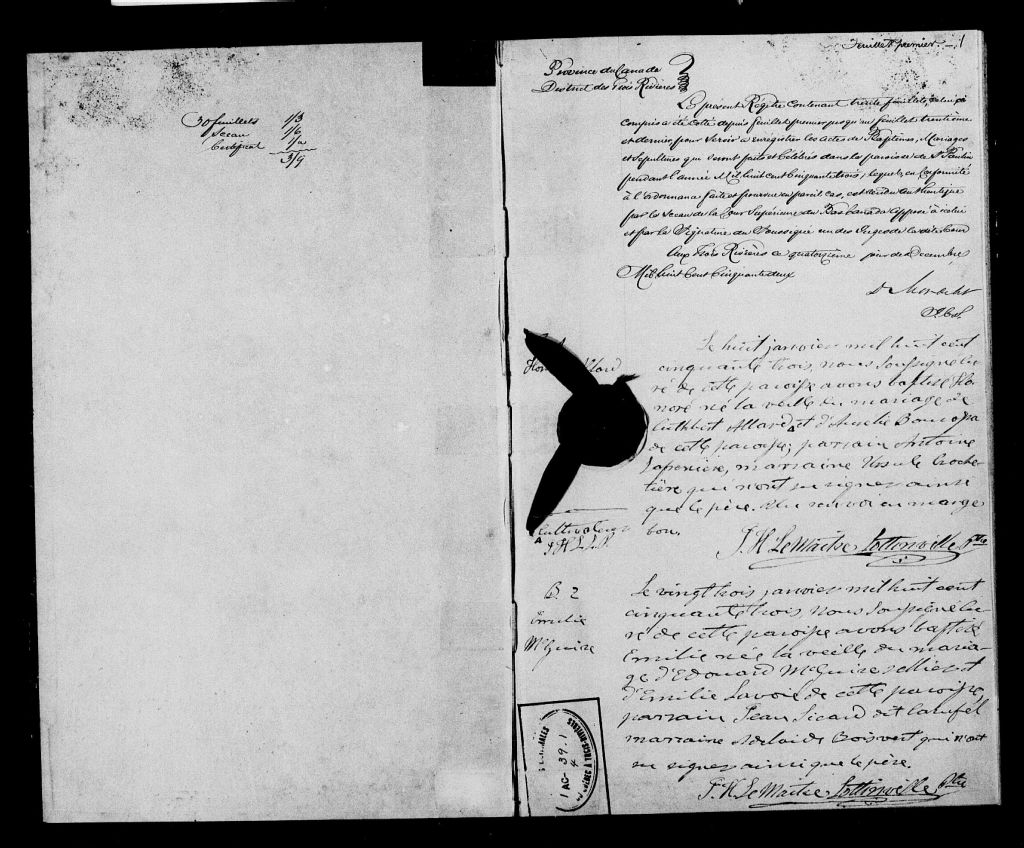 30 feuillets 1/3
Sceau 1/6
Certificat 1/
3/9
Feuillet premier. — 1
Province du Canada
District des Trois Rivières
Le présent Registre Contenant trente feuillets, celui ci
compris a été coté depuis feuillet premier jusqu'au feuillet trentième
et dernier, pour servir à enregistrer les actes de Baptêmes, Mariages
et Sépultures qui seront faits et célébrés dans la paroisse de St Paulin
pendant l'année Mil huit cent Cinquante trois, lequel, en Conformité
à l'ordonnance faite et pourvue en pareil cas, est rendu authentique
par le Sceau de la Cour Supérieure du Bas Canada apposé à icelui
et par la Signature du Soussigné un des Juges de la dite Cour
Aux Trois Rivières ce quatorzième jour de Decembre
Mil huit Cent Cinquante deux
D. Mondelet
Le huit janvier mil huit cent
cinquante trois, nous soussigné cu-
ré de cette paroisse avons baptisé Ho-
noré né la veille du mariage de
Cuthbert Allard et d'Aurelie
de cette paroisse; parrain Antoine
Laferrière, marraine Ursule Croche-
tière qui n'ont su signer ainsi
que le père. Un renvoi en marge
bon.
Cultivateur
J.H.L.L.P.
J. H LeMaitre Lottinville Ptre
B. 2
Emilie
McGuire
Le vingt trois janvier mil huit cent
cinquante trois, nous soussigné cu-
ré de cette paroisse avons baptisé
Emilie née la veille du maria-
ge d'Edouard McGuire sellier et
d'Emilie Lavoie de cette paroisse,
parrain Jean Sicard dit
marraine Adelaide Boisvert qui n'ont
su signer ainsi que le père.
J. H LeMaitre Lottinville Ptre
1 AC- 39. 1
4